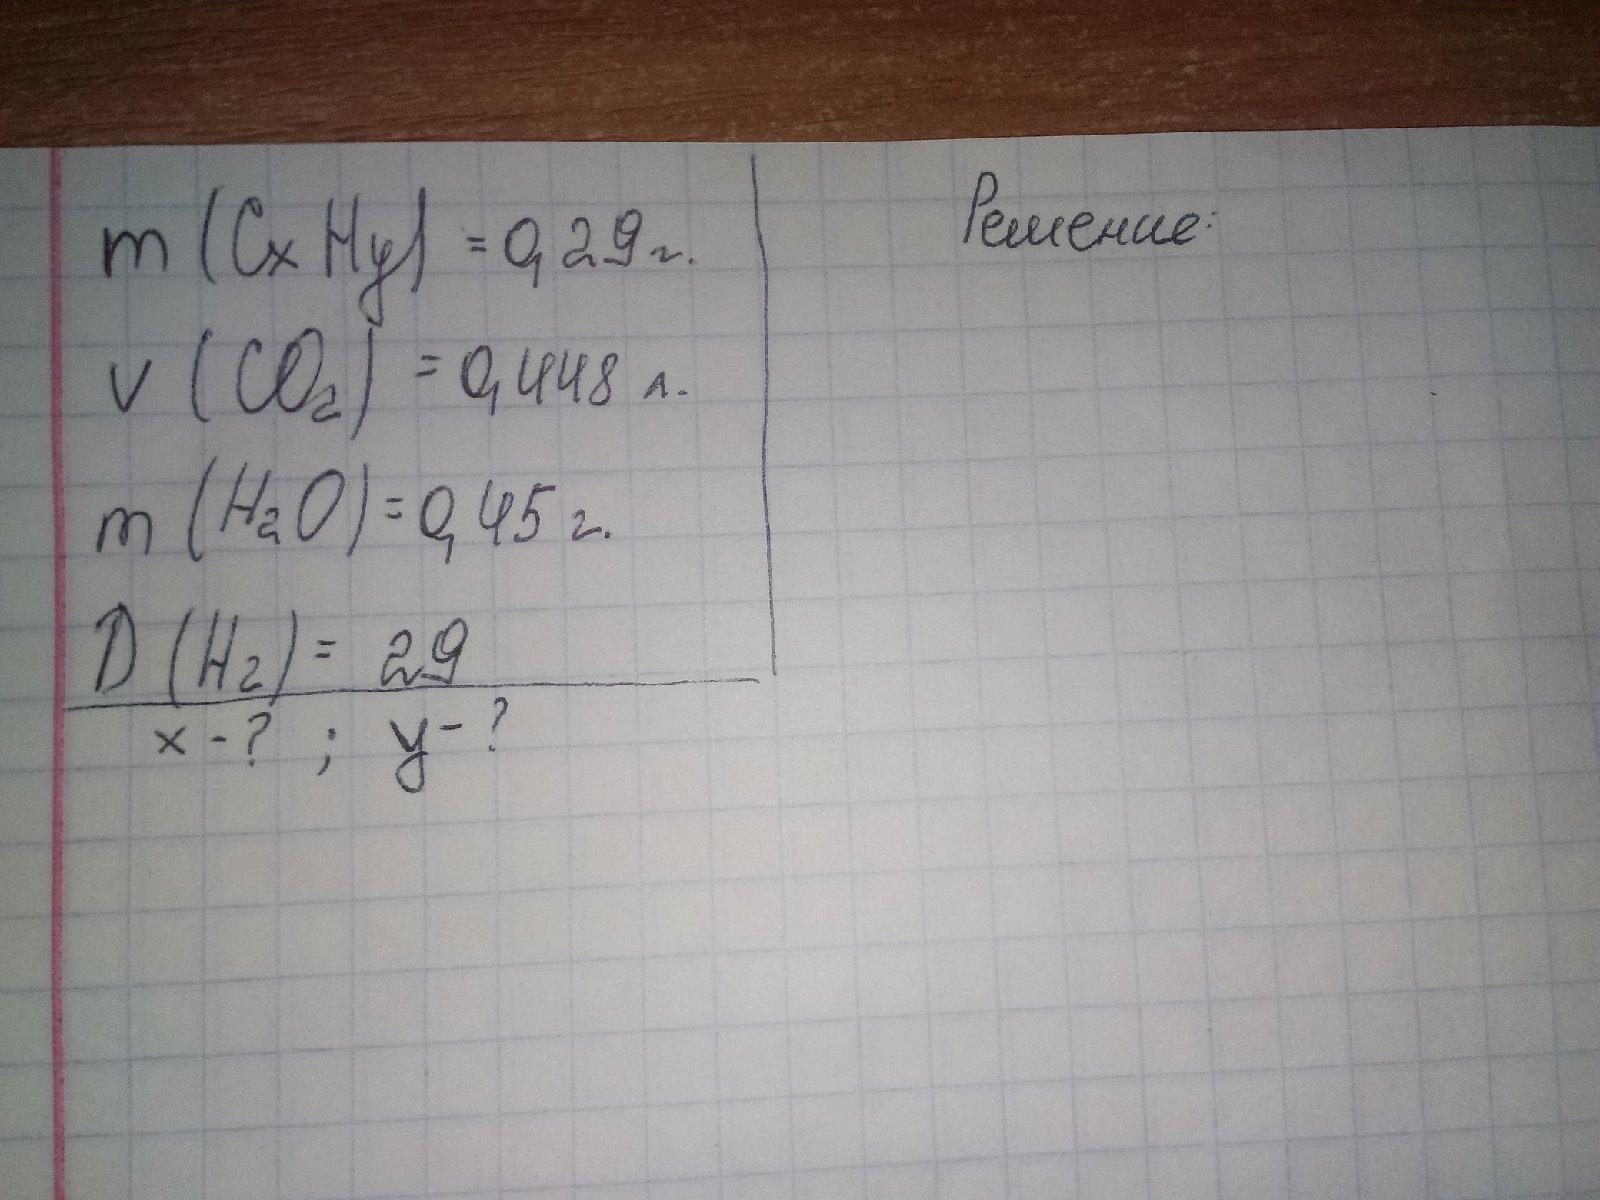 m (CxHy) = 0,29 г.
v (CO2) = 0,448 л.
m (H2O) = 0,45 г.
D (H2) = 29
x - ? ; y - ?
Решение: